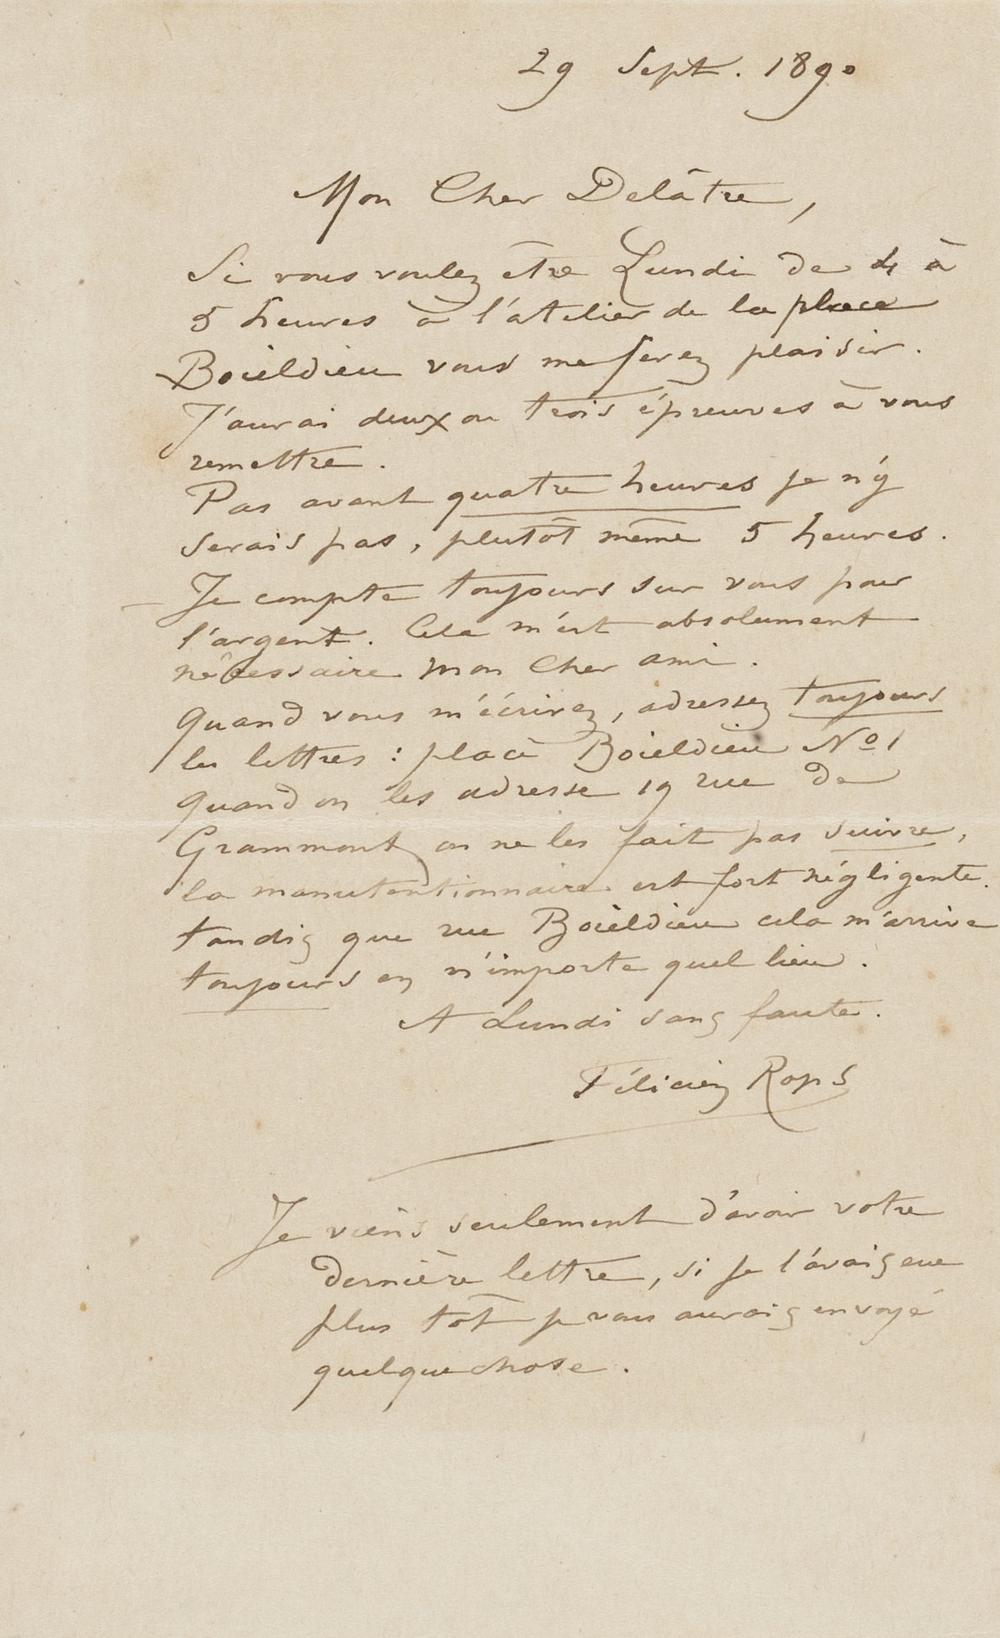 29 Sept. 1890
Mon Cher Delâtre,
Si vous voulez être Lundi de 4 à
5 heures à l'atelier de la place
Boïeldieu vous me ferez plaisir.
J'aurai deux ou trois épreuves à vous
remettre.
Pas avant quatre heures je n'y
serais pas, plutôt même 5 heures.
– Je compte toujours sur vous pour
l'argent. Cela m'est absolument
nécessaire mon Cher ami.
Quand vous m'écrivez, adressez toujours
les lettres : place Boïeldieu No 1
Quand on les adresse 19 rue de
Grammont on ne les fait pas suivre,
la manutentionnaire est fort négligente.
tandis que rue Boïeldieu cela m'arrive
toujours en n'importe quel lieu.
A Lundi sans faute.
Félicien Rops
Je viens seulement d'avoir votre
dernière lettre, si je l'avais eue
plus tôt je vous aurais envoyé
quelque chose.